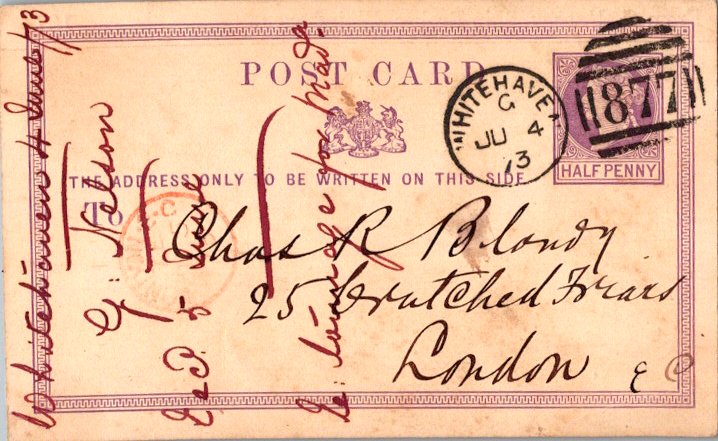 POST CARD
THE ADDRESS ONLY TO BE WRITTEN ON THIS SIDE
To
Chas R Blandy
25 Crutched Friars
London
HALF PENNY
WHITEHAVEN
G
JU 4
73
877
Whitehaven 4 June/73
G. Nelson
Rec'd. 5 June